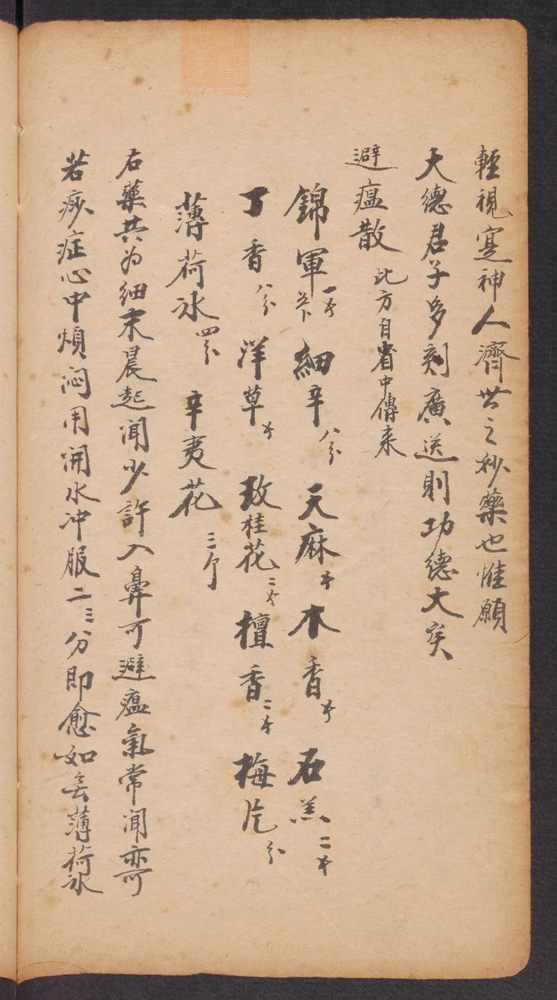 輕視寔神人濟世之秒藥也惟願
大德君子多刻廣送則功德大矣
避瘟散 此方自省中傳来
錦軍 細辛 八分 天麻 木香 石羔 二
丁香 八分 洋草 玫桂花 二 檀香 二 梅片
薄荷冰 四分 辛夷花 三
右藥共为細末晨起聞少許入鼻可避瘟氣常聞亦可
若痧症心中煩闷用開水冲服二三分即愈如無薄荷冰